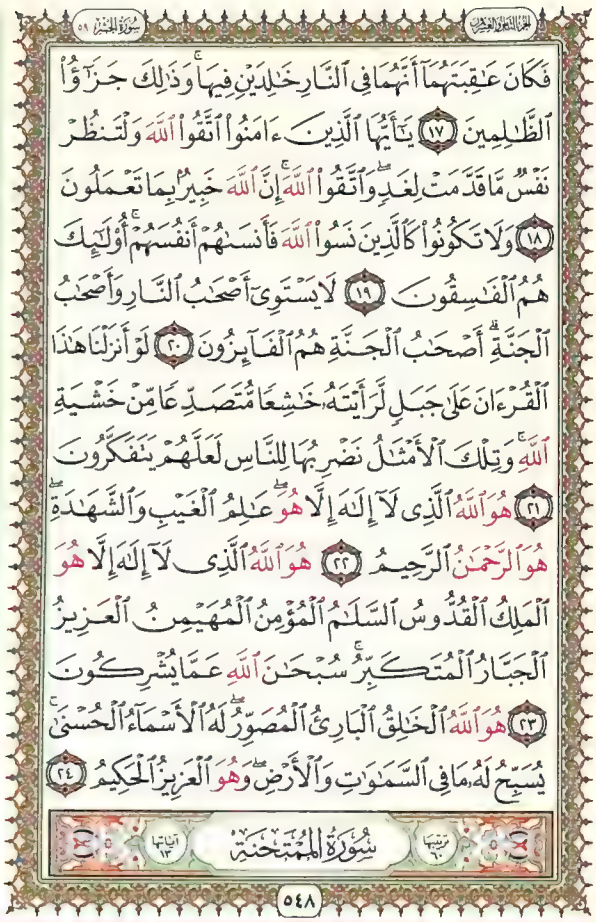 سُورَةُ الحَشْرِ ٥٩ الجُزْءُ الثَّامِنُ وَالعِشْرُونَ
فَكَانَ عَٰقِبَتَهُمَآ أَنَّهُمَا فِى ٱلنَّارِ خَٰلِدَيْنِ فِيهَا ۚ وَذَٰلِكَ جَزَٰٓؤُا۟
ٱلظَّٰلِمِينَ ١٧ يَٰٓأَيُّهَا ٱلَّذِينَ ءَامَنُوا۟ ٱتَّقُوا۟ ٱللَّهَ وَلْتَنظُرْ
نَفْسٌ مَّا قَدَّمَتْ لِغَدٍ ۖ وَٱتَّقُوا۟ ٱللَّهَ ۚ إِنَّ ٱللَّهَ خَبِيرٌۢ بِمَا تَعْمَلُونَ
١٨ وَلَا تَكُونُوا۟ كَٱلَّذِينَ نَسُوا۟ ٱللَّهَ فَأَنسَىٰهُمْ أَنفُسَهُمْ ۚ أُو۟لَٰٓئِكَ
هُمُ ٱلْفَٰسِقُونَ ١٩ لَا يَسْتَوِىٓ أَصْحَٰبُ ٱلنَّارِ وَأَصْحَٰبُ
ٱلْجَنَّةِ ۚ أَصْحَٰبُ ٱلْجَنَّةِ هُمُ ٱلْفَآئِزُونَ ٢٠ لَوْ أَنزَلْنَا هَٰذَا
ٱلْقُرْءَانَ عَلَىٰ جَبَلٍ لَّرَأَيْتَهُۥ خَٰشِعًا مُّتَصَدِّعًا مِّنْ خَشْيَةِ
ٱللَّهِ ۚ وَتِلْكَ ٱلْأَمْثَٰلُ نَضْرِبُهَا لِلنَّاسِ لَعَلَّهُمْ يَتَفَكَّرُونَ
٢١ هُوَ ٱللَّهُ ٱلَّذِى لَآ إِلَٰهَ إِلَّا هُوَ ۖ عَٰلِمُ ٱلْغَيْبِ وَٱلشَّهَٰدَةِ ۖ
هُوَ ٱلرَّحْمَٰنُ ٱلرَّحِيمُ ٢٢ هُوَ ٱللَّهُ ٱلَّذِى لَآ إِلَٰهَ إِلَّا هُوَ
ٱلْمَلِكُ ٱلْقُدُّوسُ ٱلسَّلَٰمُ ٱلْمُؤْمِنُ ٱلْمُهَيْمِنُ ٱلْعَزِيزُ
ٱلْجَبَّارُ ٱلْمُتَكَبِّرُ ۚ سُبْحَٰنَ ٱللَّهِ عَمَّا يُشْرِكُونَ
٢٣ هُوَ ٱللَّهُ ٱلْخَٰلِقُ ٱلْبَارِئُ ٱلْمُصَوِّرُ ۖ لَهُ ٱلْأَسْمَآءُ ٱلْحُسْنَىٰ ۚ
يُسَبِّحُ لَهُۥ مَا فِى ٱلسَّمَٰوَٰتِ وَٱلْأَرْضِ ۖ وَهُوَ ٱلْعَزِيزُ ٱلْحَكِيمُ ٢٤
ترتيبها ٦٠ سُورَةُ المُمْتَحنَة آياتها ١٣
٥٤٨